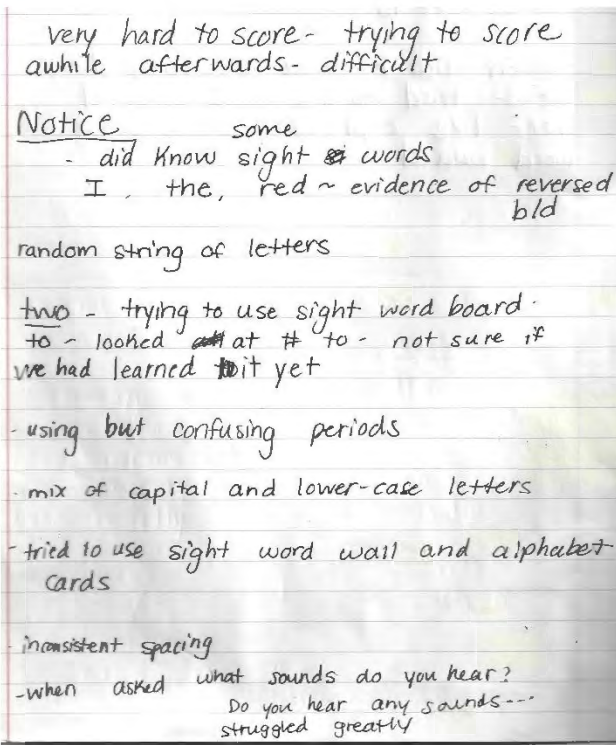 very hard to score - trying to score
awhile afterwards - difficult
Notice some
- did know sight words
I, the, red ~ evidence of reversed
b/d
random string of letters
two - trying to use sight word board.
to - looked at # to - not sure if
we had learned it yet
- using but confusing periods
- mix of capital and lower-case letters
- tried to use sight word wall and alphabet
cards
- inconsistent spacing
- when asked what sounds do you hear?
Do you hear any sounds---
struggled greatly